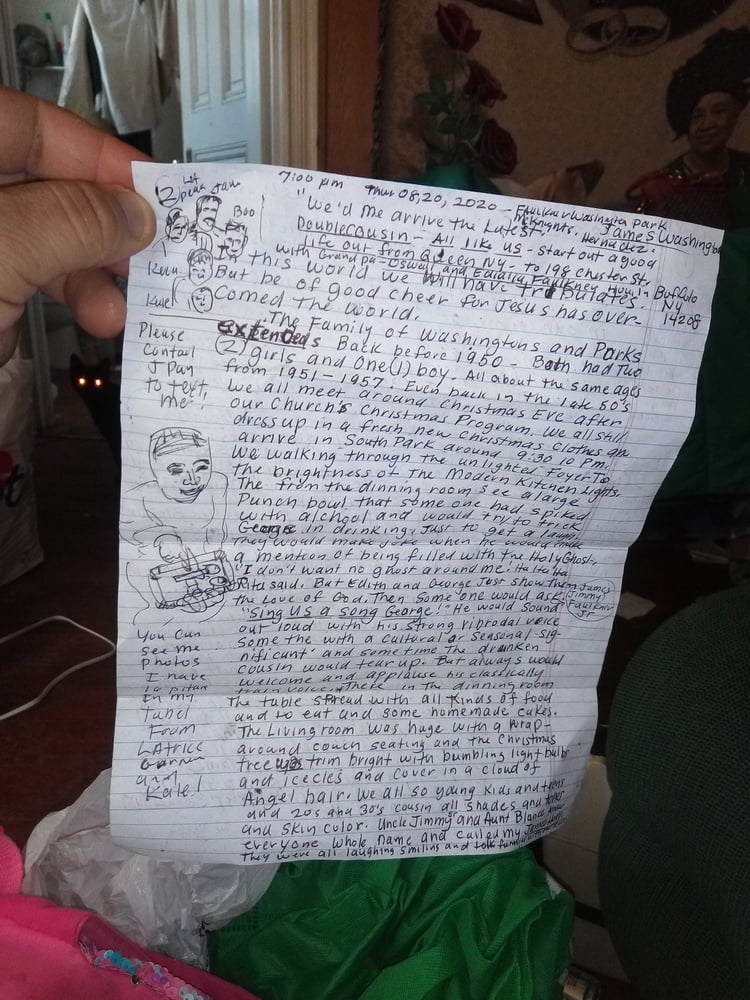 7:00 pm Thur 08,20, 2020 - Faulkner Wasington Park
McKnights. Hernadez. James Washington
"We'd me arrive the Latest
Doublecousin - All like us - start out a good
life out from Queen NY - to 198 Chester St,
with Grandpa Oswal and Eulalia Faulkner
Buffalo
NY
14208
In this world we will have Tribulates!
But be of good cheer for Jesus has over-
comed the world.
Boo
Kale
Please
Contact
J Pan
to text
me!
The Family of Washingtons and Parks
extended Back before 1950 - Both had Two
(2) girls and one(1) boy. All about the same ages
from 1951 - 1957. Even back in the late 50's
we all meet around Christmas Eve after
our Church's Christmas Program. We all still
dress up in a fresh new Christmas clothes an
arrive in South Park around 9:30 10 pm.
We walking through the unlighted Foyer To
the brightness of The Modern Kitchen Lights.
The from the dinning room see a large
Punch bowl that some one had spiked
with alchool and would try to trick
George in drinking, Just to get a laugh,
They would make joke when he would make
a mention of being filled with the Holy Ghost,
"I don't want no ghost around me! Ha Ha Ha
Rita said. But Edith and George Just show them
the Love of God. Then Some one would ask
"Sing Us a Song George!" He would sound
James
Jimmy
Faulkner
Jr
out loud with his strong vibrodal voice
Some the with a cultural or seasonal sig-
nificant and sometime the drunken
cousin would tear up. But always would
welcome and applause his classically
train voice. There in the dinning room
The table spread with all kinds of food
and to eat and some homemade cakes.
The Living room was huge with a wrap-
around couch seating and the Christmas
tree was trim bright with bumbling light bulbs
and icecles and cover in a cloud of
Angel hair. We all so young kids and teens
and 20s and 30's cousin all shades and
and skin color. Uncle Jimmy and Aunt Blanch know
everyone whole name and called my
They were all laughing smiling and talk
You can
see me
photos
I have
in my
Tabel
From
LATRICE
and
Kale!